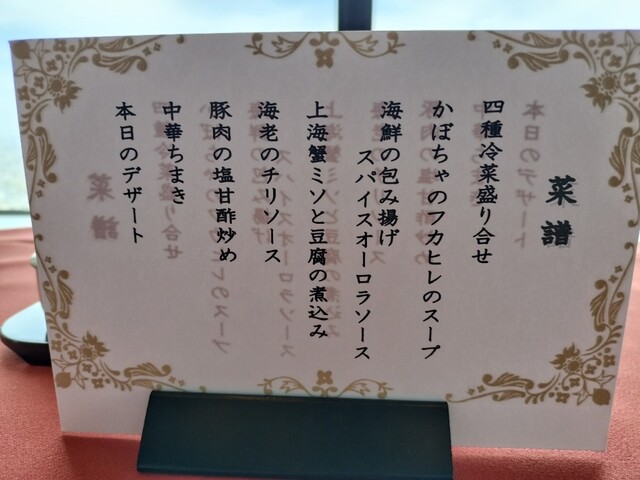 菜譜
四種冷菜盛り合せ
かぼちゃのフカヒレのスープ
海鮮の包み揚げ
スパイスオーロラソース
上海蟹ミソと豆腐の煮込み
海老のチリソース
豚肉の塩甘酢炒め
中華ちまき
本日のデザート